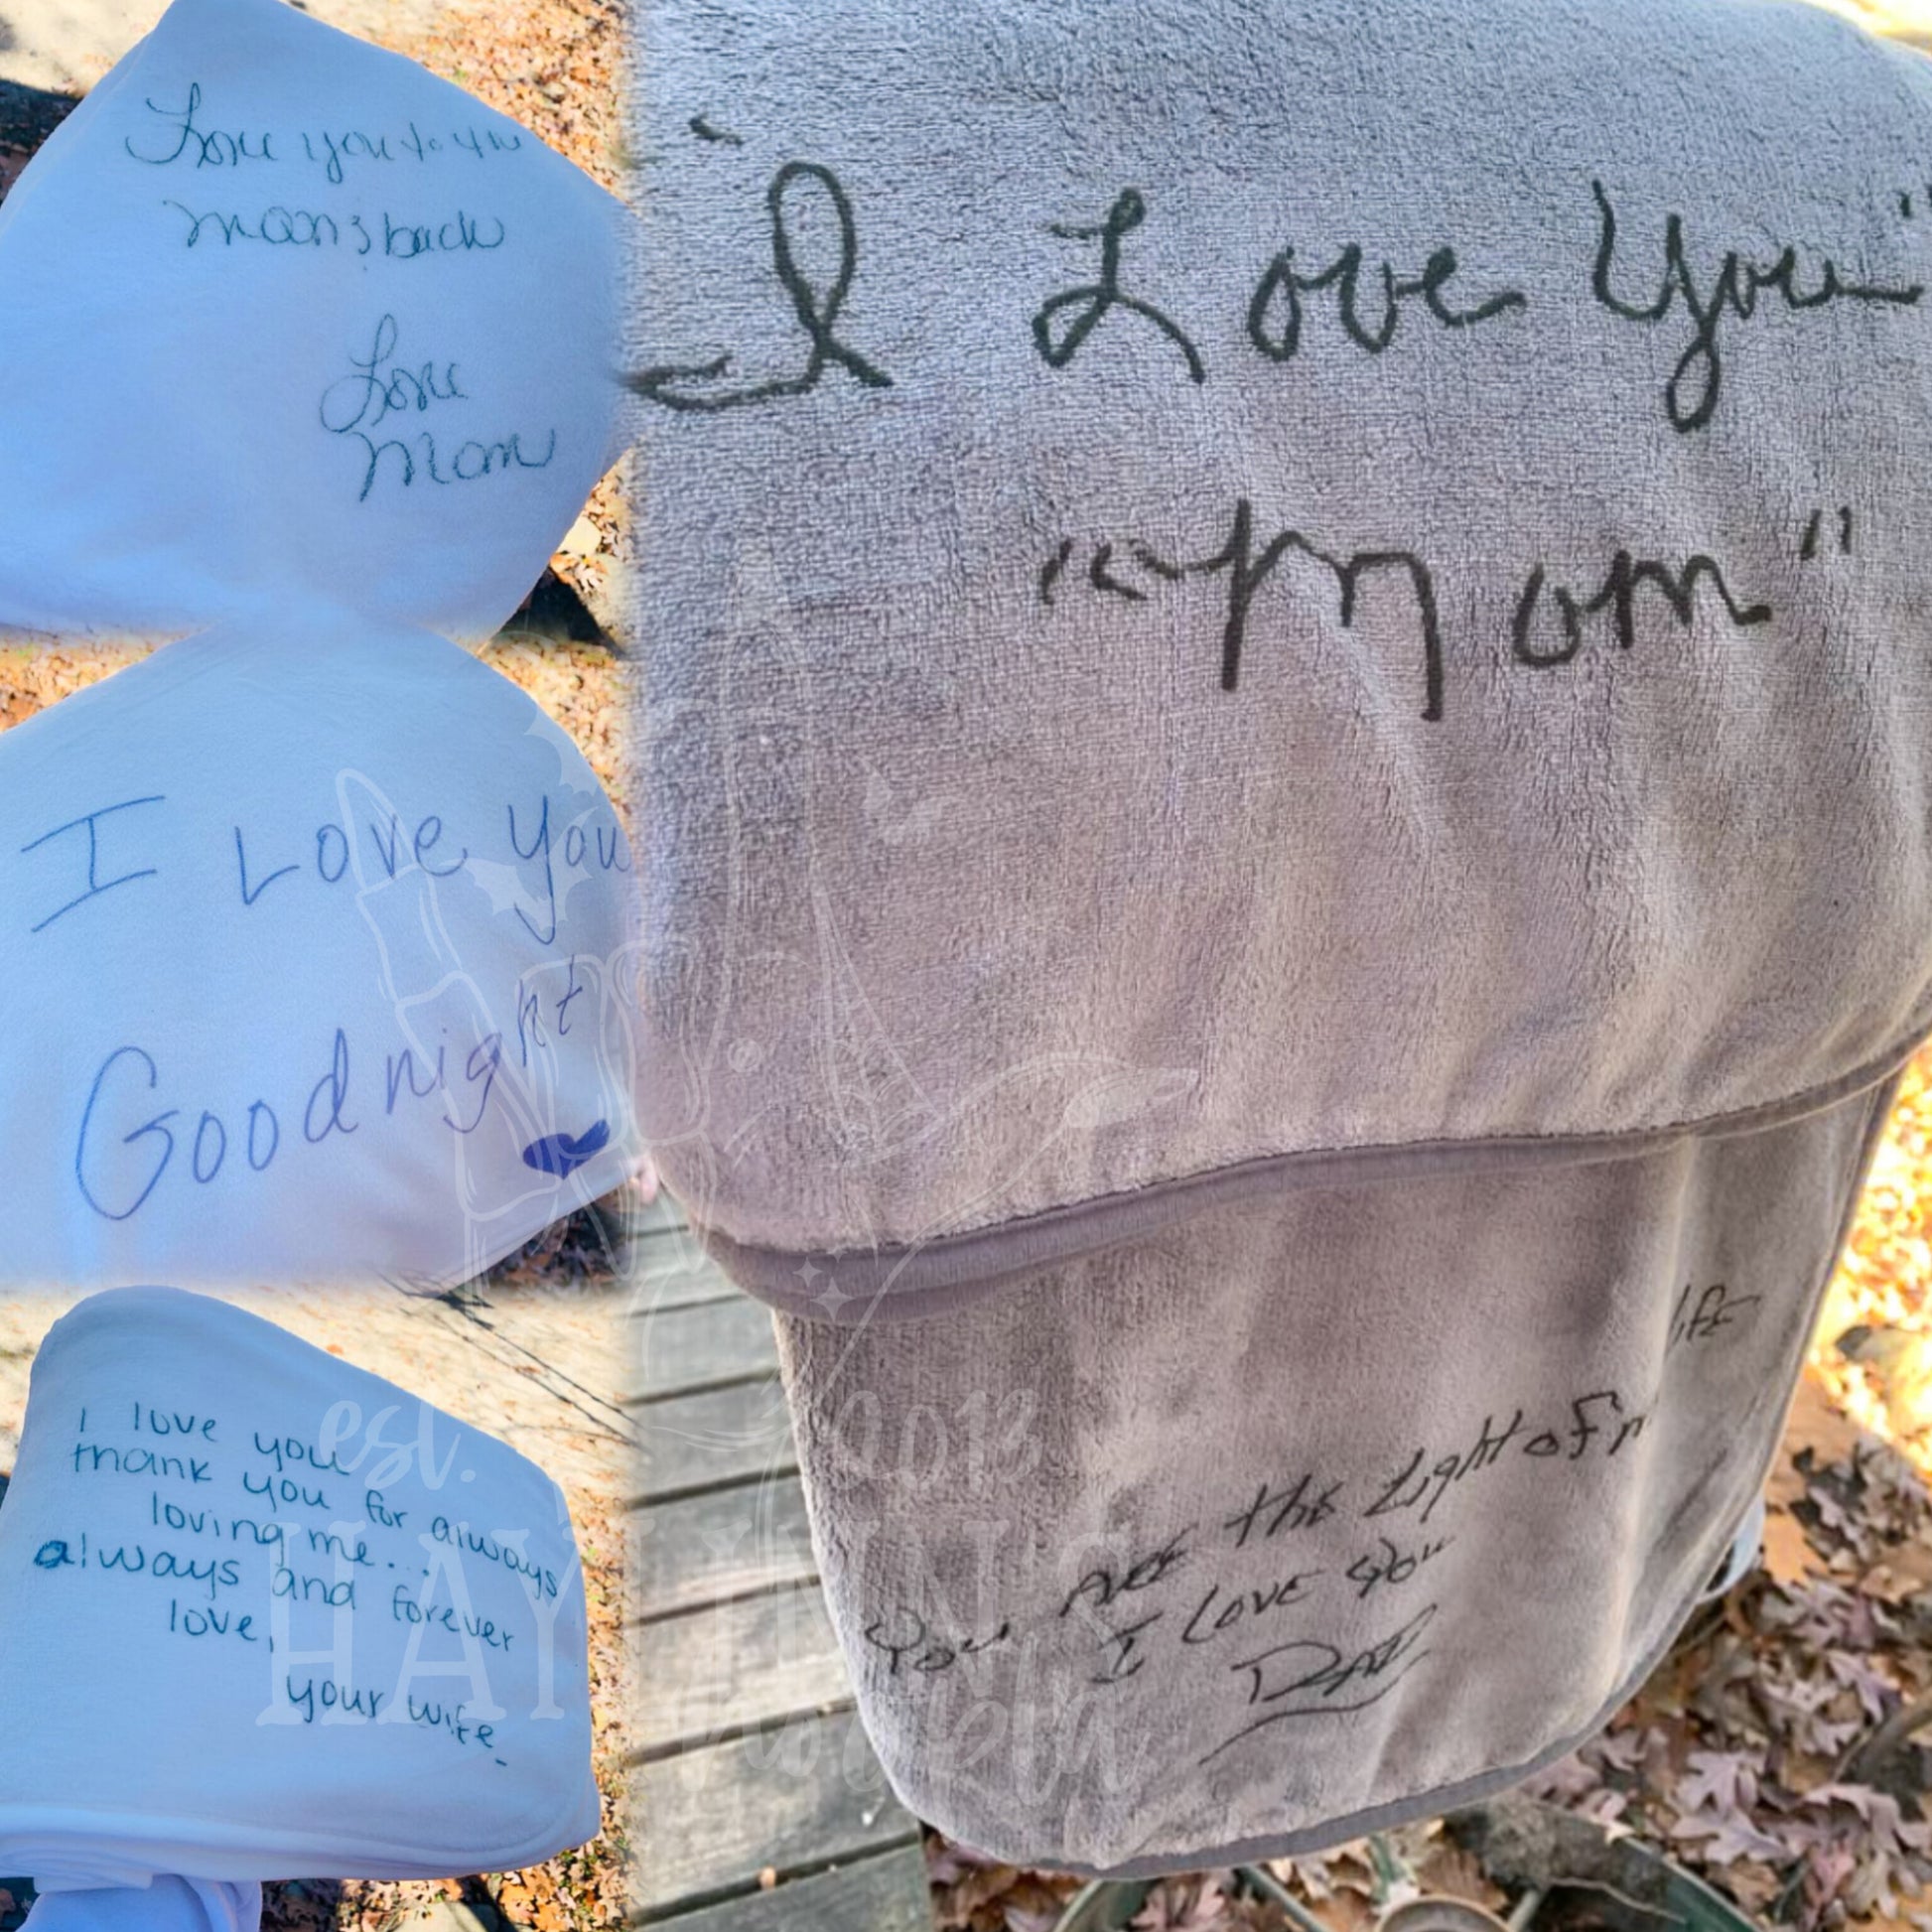 Love you to the
moon & back
Love
Mom
I Love You
Goodnight
I love you
thank you for always
loving me...
always and forever
love,
your wife
"I Love You"
"Mom"
life
You ARE the Light of m
I LOVE you
DAD
est. 2018
HAYLINN'S